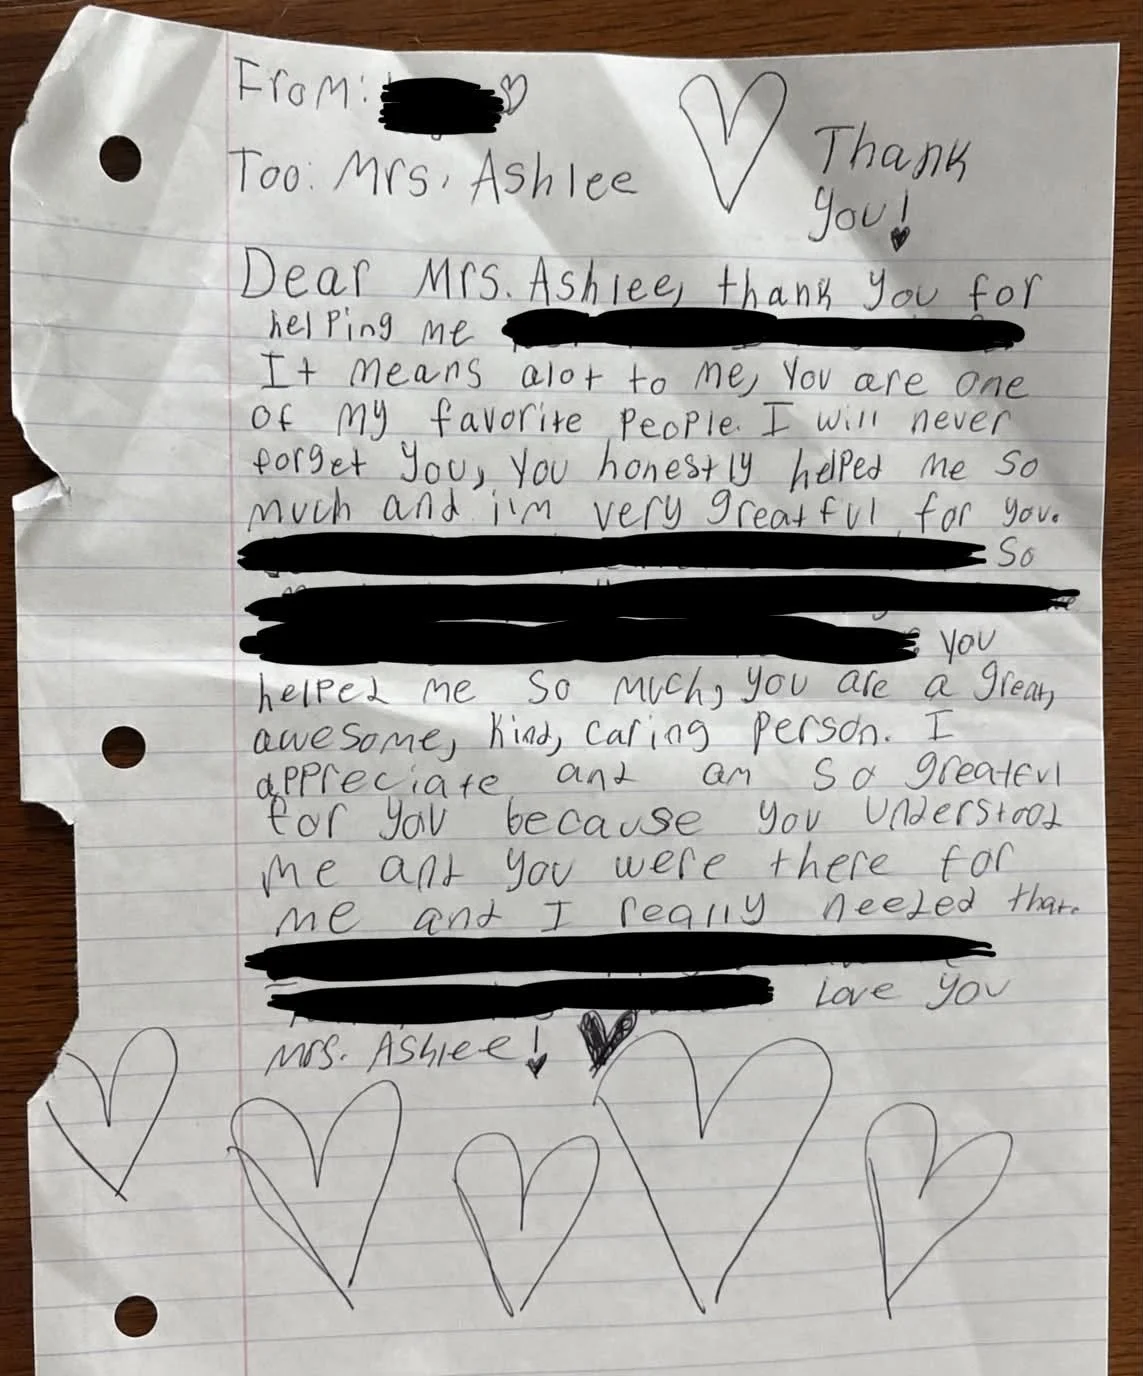 From:
Too: Mrs. Ashlee
Thank
you!
Dear Mrs. Ashlee, thank you for
helping me
It means alot to me, you are one
of my favorite people. I will never
forget you, you honestly helped me so
much and i'm very greatful for you.
So
you
helped me so much, you are a great,
awesome, kind, caring person. I
appreciate and am so greatful
for you because you understood
me and you were there for
me and I really needed that.
Love you
Mrs. Ashlee!